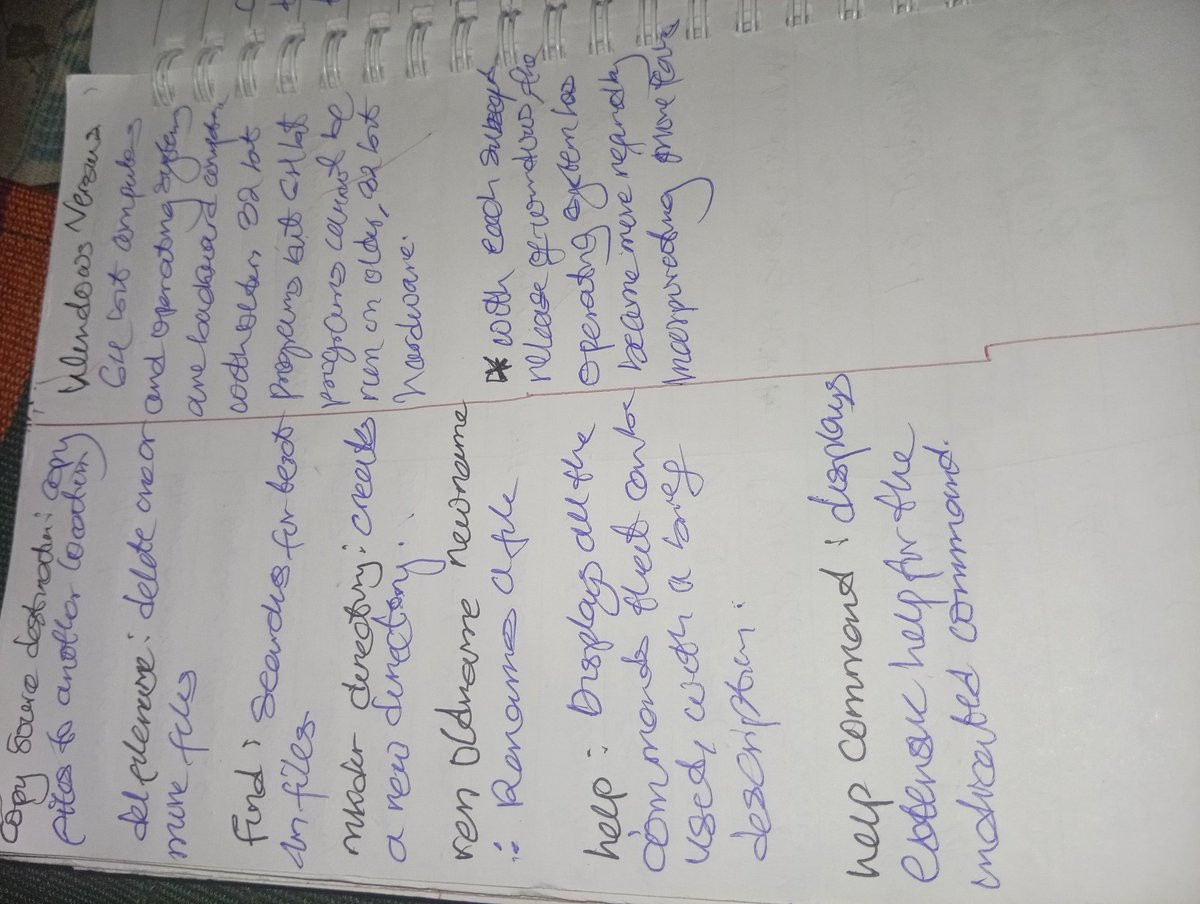 Copy source destination: Copy
files to another location
del filename: delete one or
more files
Find: Searches for text
in files.
mkdir directory: creates
a new directory.
ren oldname newname
: Renames a file
help: Displays all the
commands that can be
used, with a brief
description.
help command: displays
extensive help for the
indicated command.
Windows Versions
64 bit computers
and operating systems
are backward
with older, 32 bit
programs but 64 bit
programs cannot be
run on older, 32 bit
hardware.
* with each
release of windows, the
operating system has
become more
incorporating more